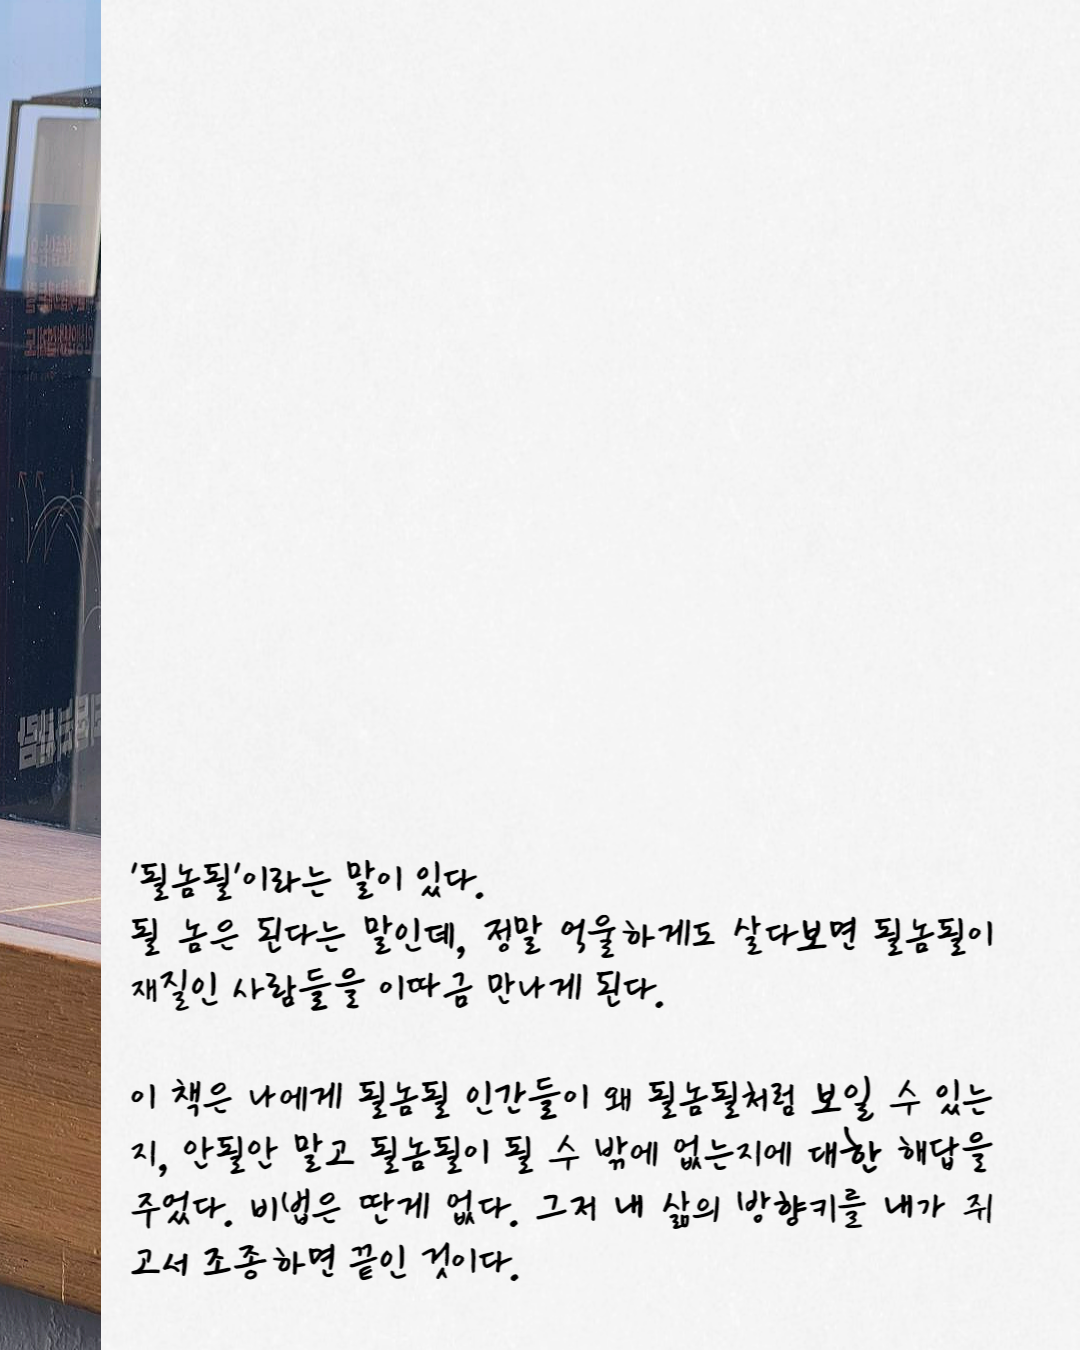 '될놈될'이라는 말이 있다.
될 놈은 된다는 말인데, 정말 억울하게도 살다보면 될놈될이
재질인 사람들을 이따금 만나게 된다.
이 책은 나에게 될놈될 인간들이 왜 될놈될처럼 보일 수 있는
지, 안될안 말고 될놈될이 될 수 밖에 없는지에 대한 해답을
주었다. 비법은 딴게 없다. 그저 내 삶의 방향키를 내가 쥐
고서 조종하면 끝인 것이다.